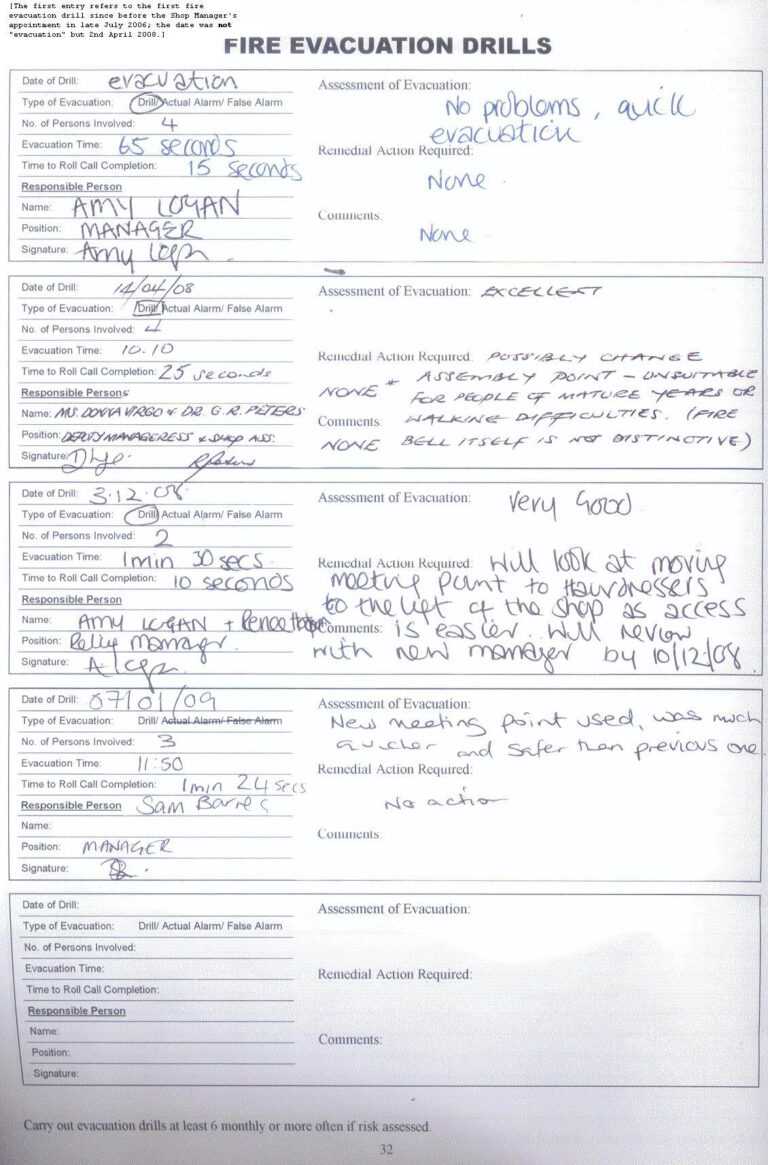 [The first entry refers to the first fire
evacuation drill since before the Shop Manager's
appointment in late July 2006; the date was not
"evacuation" but 2nd April 2008.]
FIRE EVACUATION DRILLS
Date of Drill: evacuation
Type of Evacuation: Drill/Actual Alarm/ False Alarm
No. of Persons Involved: 4
Evacuation Time: 65 seconds
Time to Roll Call Completion: 15 seconds
Responsible Person
Name: AMY LOGAN
Position: MANAGER
Signature: Amy Logan
Assessment of Evacuation:
No problems, quick
evacuation
Remedial Action Required:
None.
Comments:
None.
Date of Drill: 14/04/08
Type of Evacuation: Drill/Actual Alarm/ False Alarm
No. of Persons Involved: 4
Evacuation Time: 10.10
Time to Roll Call Completion: 25 seconds
Responsible Persons
Name: MS. DONNA VIRGO & DR. G. R. PETERS
Position: DEPUTY MANAGERESS & SHOP ASS.
Signature:
Assessment of Evacuation: EXCELLENT
Remedial Action Required: POSSIBLY CHANGE
NONE * ASSEMBLY POINT - UNSUITABLE
FOR PEOPLE OF MATURE YEARS OR
Comments: WALKING DIFFICULTIES. (FIRE
NONE BELL ITSELF IS NOT DISTINCTIVE)
Date of Drill: 3.12.08
Type of Evacuation: Drill/Actual Alarm/ False Alarm
No. of Persons Involved: 2
Evacuation Time: 1min 30 secs.
Time to Roll Call Completion: 10 seconds
Responsible Person
Name: AMY LOGAN + Renee
Position: Relief manager.
Signature:
Assessment of Evacuation: Very Good
Remedial Action Required: Will look at moving
meeting point to Hairdressers
to the left of the shop as access
Comments: is easier. Will review
with new manager by 10/12/08.
Date of Drill: 07/01/09
Type of Evacuation: Drill/ Actual Alarm/ False Alarm
No. of Persons Involved: 3
Evacuation Time: 11:50
Time to Roll Call Completion: 1min 24 secs
Responsible Person Sam
Name:
Position: MANAGER
Signature:
Assessment of Evacuation:
New meeting point used, was much
quicker and safer than previous one.
Remedial Action Required:
No action
Comments:
Date of Drill:
Type of Evacuation: Drill/ Actual Alarm/ False Alarm
No. of Persons Involved:
Evacuation Time:
Time to Roll Call Completion:
Responsible Person
Name:
Position:
Signature:
Assessment of Evacuation:
Remedial Action Required:
Comments:
Carry out evacuation drills at least 6 monthly or more often if risk assessed.
32